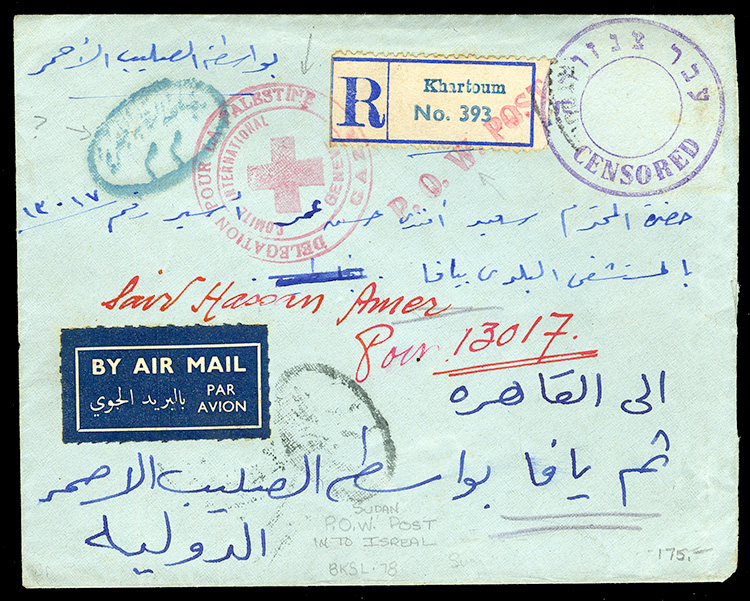 بواسطة الصليب الأحمر
R
Khartoum
No. 393
P.O.W. POST
עבר צנזורה
CENSORED
DELEGATION POUR LA PALESTINE
COMITE INTERNATIONAL GENEVE
GAZA
حضرة المحترم سعيد أفندى حسن عمر أسير رقم ١٣٠١٧
بالمستشفى البلدى بيافا
Said Hassan Amer
Pow. 13017.
BY AIR MAIL
بالبريد الجوي
PAR
AVION
الى القاهره
ثم يافا بواسطة الصليب الاحمر
الدولية
SUDAN
P.O.W. POST
INTO ISREAL
BKSL·78
175,-